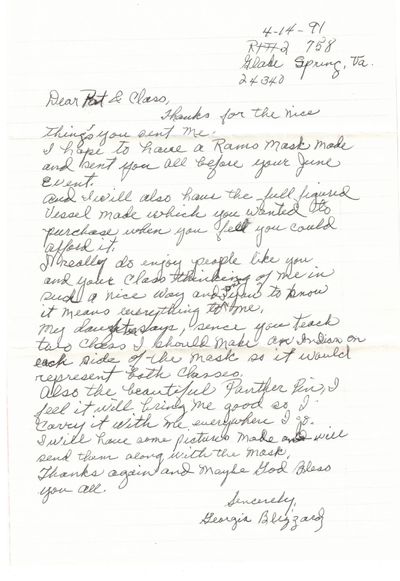 4-14-91
Rt#2 758
Glade Spring, Va.
24340
Dear Pat & Class,
Thanks for the nice
things you sent me.
I hope to have a Rams Mask made
and sent you all before your June
Event.
And I will also have the full figured
Vessel made which you wanted to
purchase when you feel you could
afford it.
I really do enjoy people like you
and your Class thinking of me in
such a nice way and for you to know
it means everything to me.
My daughter says, sence you teach
two Class I should make an Indian on
each side of the mask so it would
represent both classes.
Also the beautiful Panther Pin, I
feel it will bring me good so I
Carry it with me everywhere I go.
I will have some pictures made and will
send them along with the Mask.
Thanks again and Maybe God Bless
you all.
Sincerely,
Georgia Blizzard